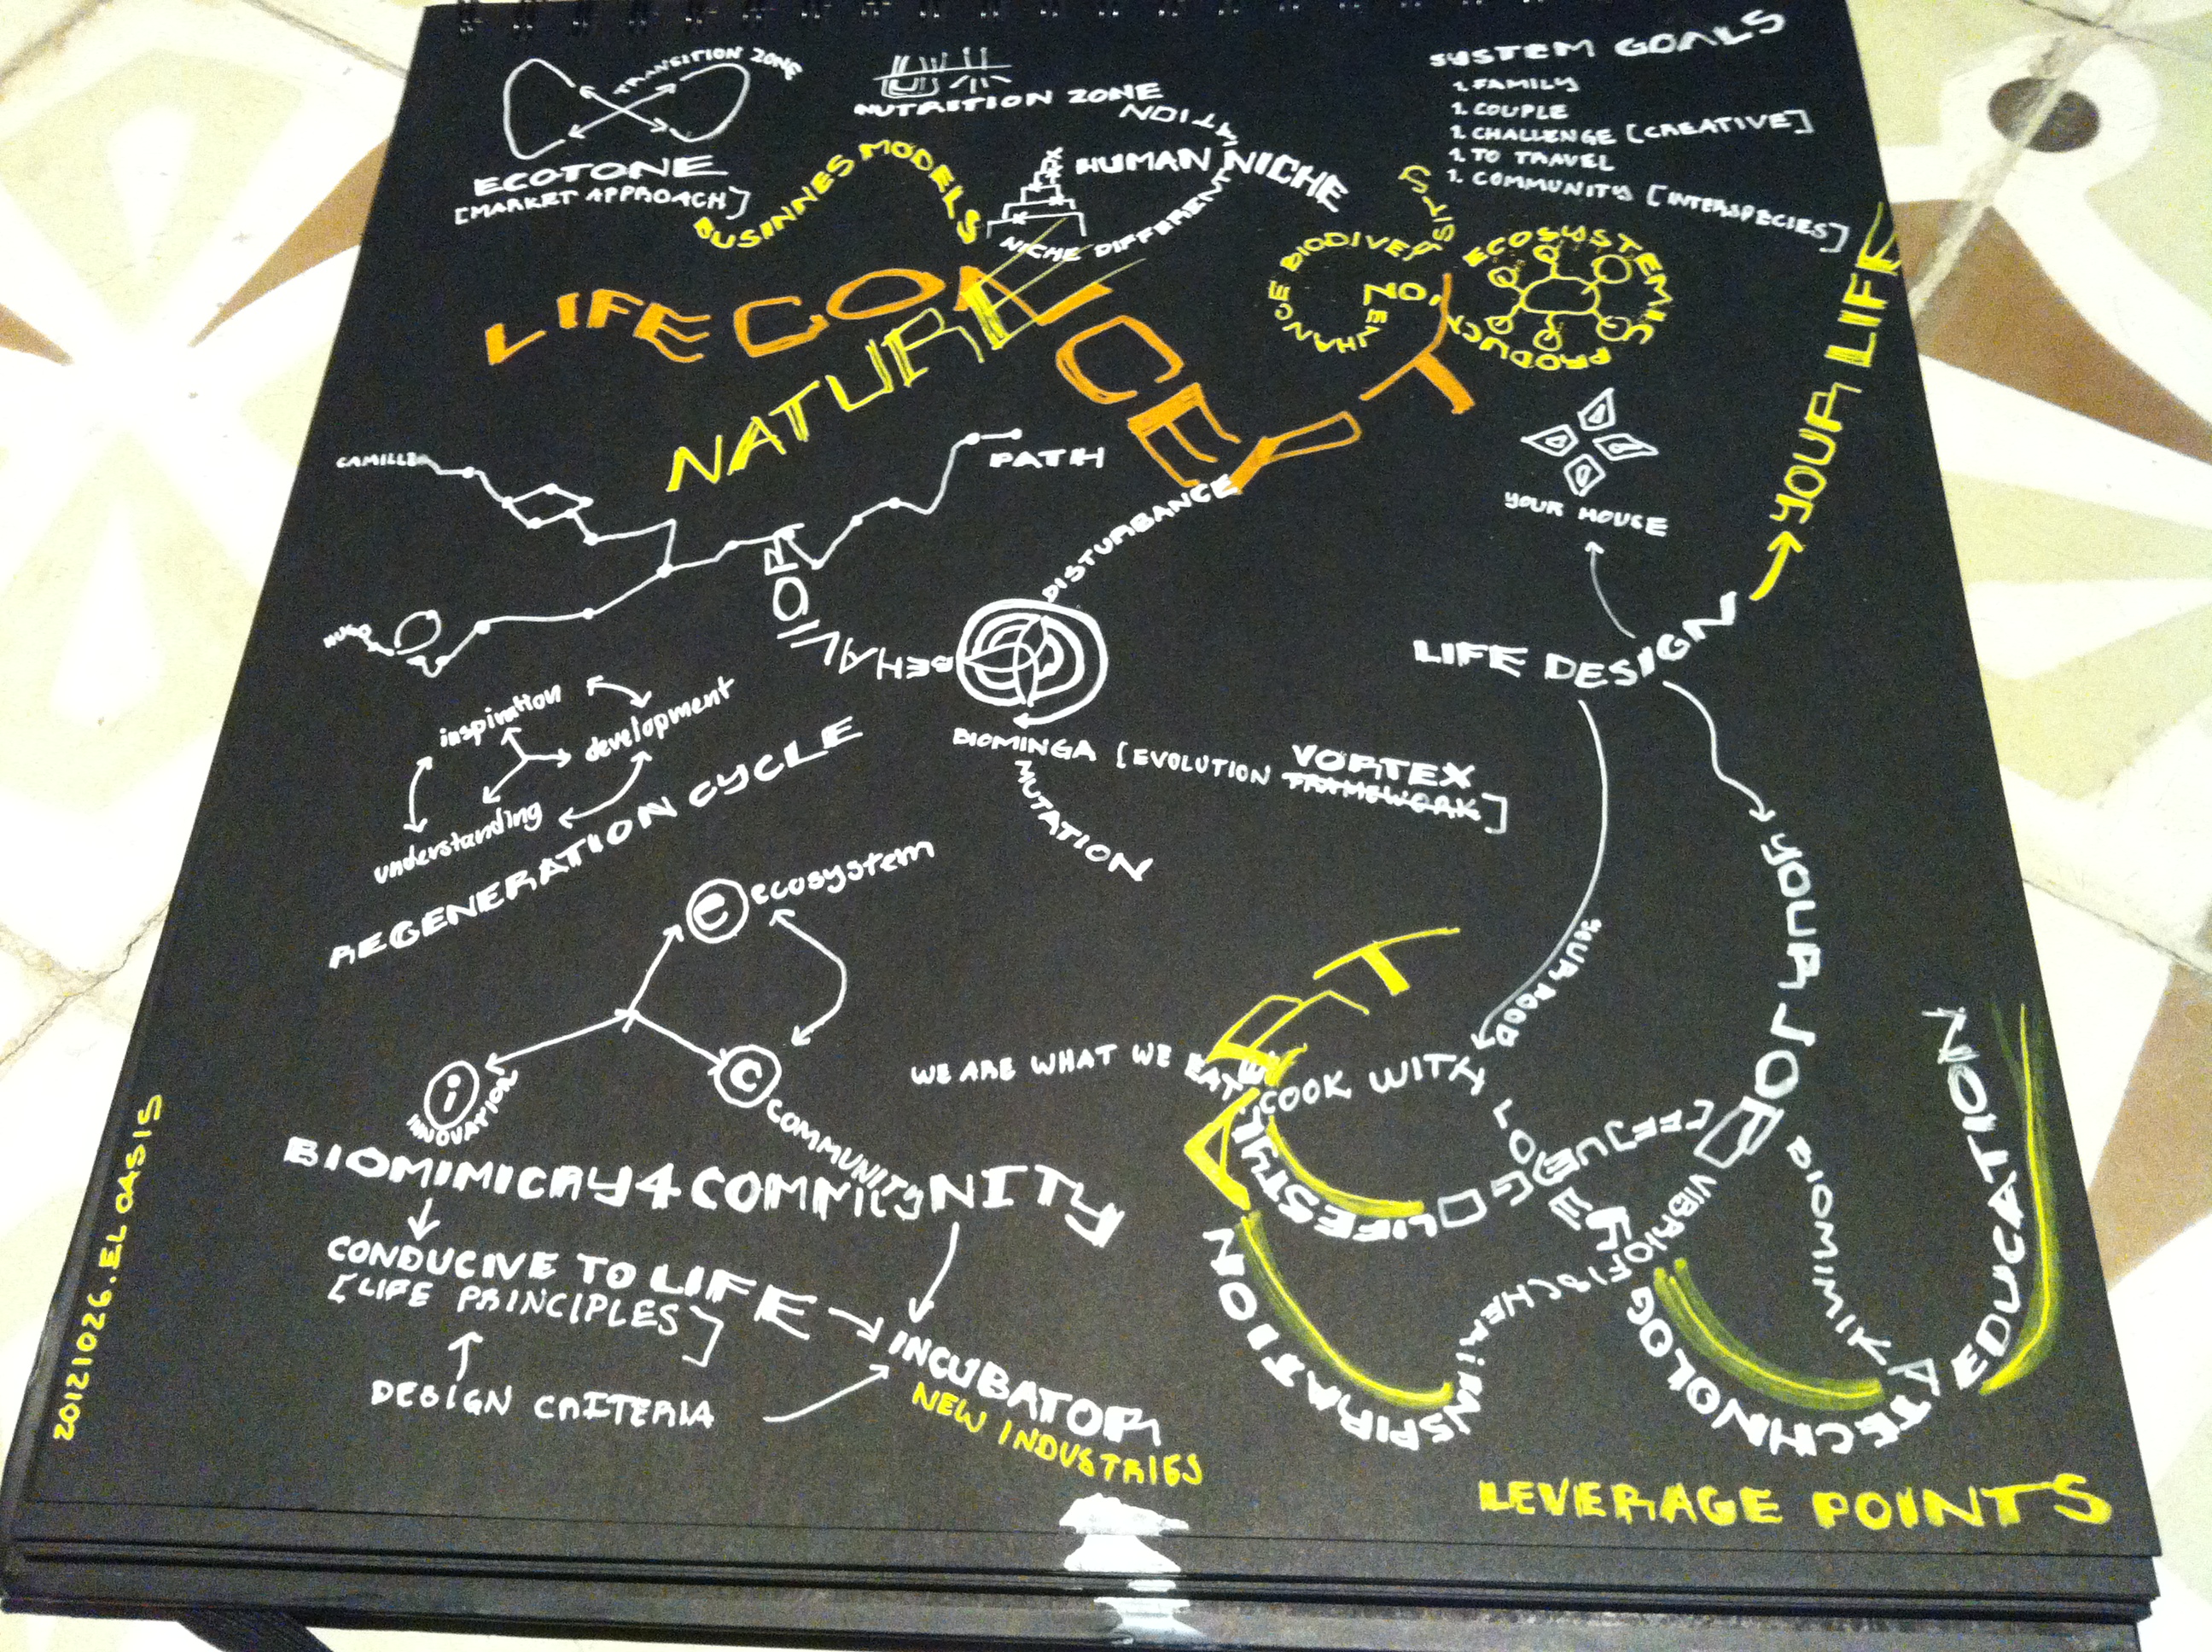 TRANSITION ZONE
ECOTONE
[MARKET APPROACH]
NUTRITION ZONE
BUSINNES MODELS
HUMAN NICHE
NICHE DIFFERENTIATION
SYSTEM GOALS
1. FAMILY
1. COUPLE
1. CHALLENGE [CREATIVE]
1. TO TRAVEL
1. COMMUNITY [INTERSPECIES]
LIFE CONCEPT
NATURE
ENHANCE BIODIVERSITY
ECOSYSTEMIC
PRODUCTION
YOUR LIFE
YOUR HOUSE
LIFE DESIGN
CAMILLE
PATH
HUGO
DISTURBANCE
BEHAVIOR
BIOMINGA [EVOLUTION VORTEX FRAMEWORK]
MUTATION
inspiration
development
understanding
REGENERATION CYCLE
e ecosystem
i INNOVATION
C COMMUNITY
BIOMIMICRY 4 COMMUNITY
CONDUCIVE TO LIFE
[LIFE PRINCIPLES]
DESIGN CRITERIA
INCUBATOR
NEW INDUSTRIES
YOUR FOOD
YOUR JOB
WE ARE WHAT WE EAT
COOK WITH
ART
LIFESTYLE
INSPIRATION
TECHNOLOG
EDUCATION
LEVERAGE POINTS
20121026. EL OASIS